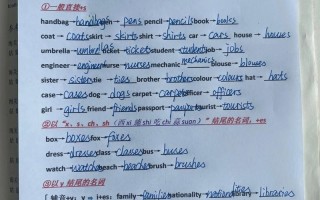 ①一般直接+s
handbag→handbags pen→pens pencil→pencils book→books
coat→coats skirt→skirts shirt→shirts car→cars house→houses
umbrella→umbrellas ticket→tickets student→students job→jobs
engineer→engineers nurse→nurses mechanic→mechanics blouse→blouses
sister→sisters tie→ties brother→brothers colour→colours hat→hats
case→cases dog→dogs carpet→carpets officer→officers
girl→girls friend→friends passport→passports tourist→tourists
box→boxes fox→foxes
dress→dresses class→classes bus→buses
watch→watches beach→beaches brush→brushes
③以y结尾的名词
family→families nationality→nationalities library→libraries